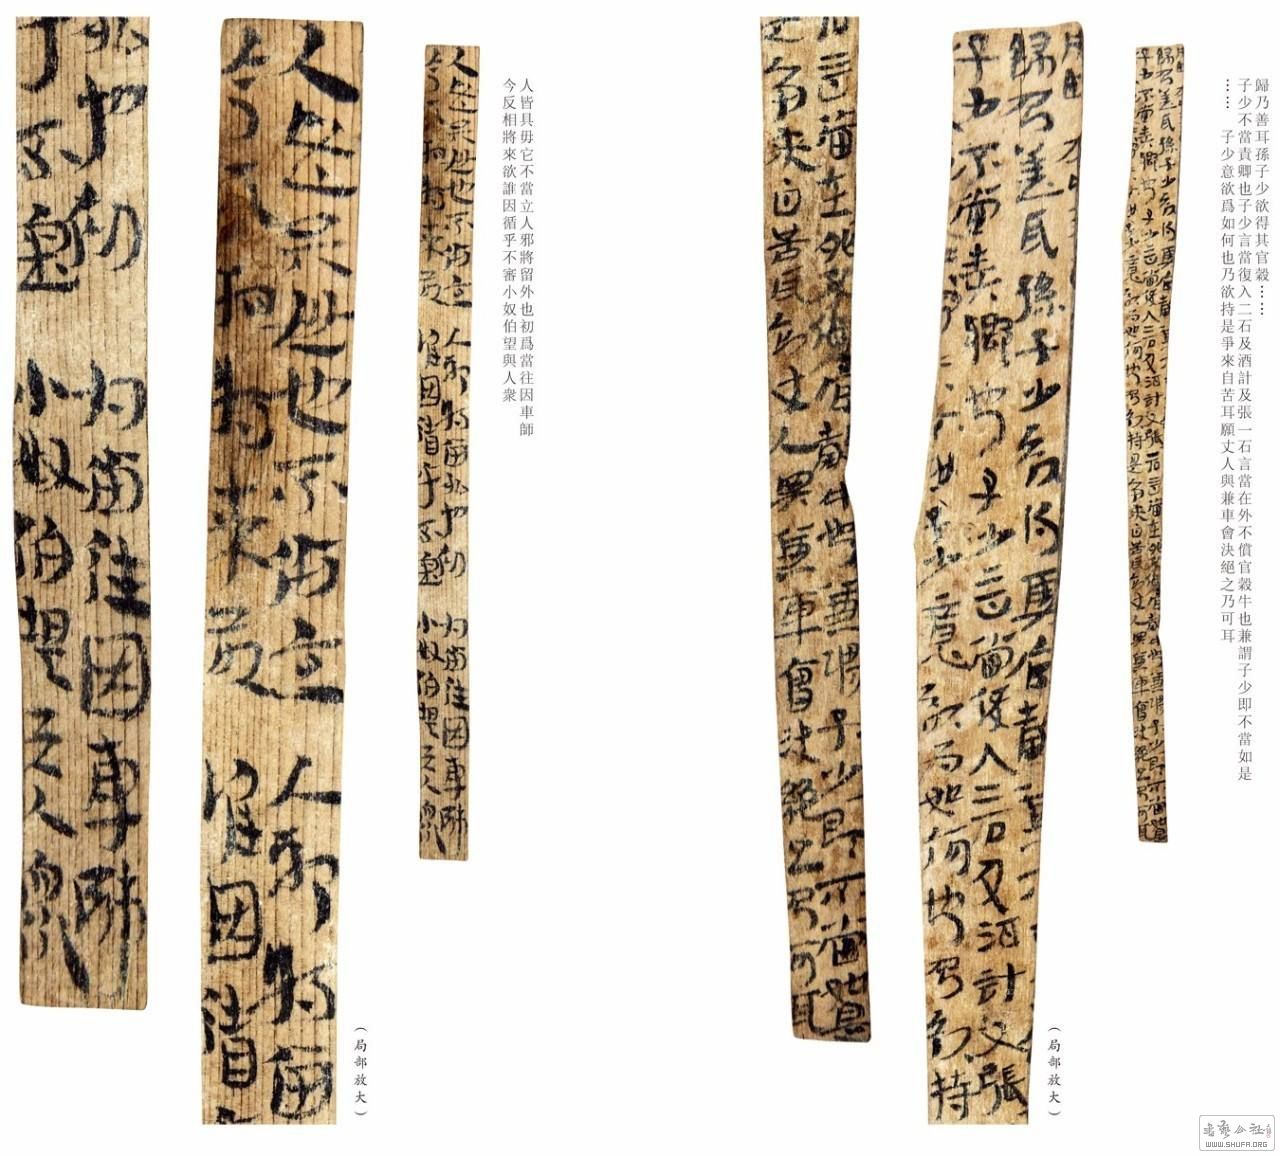 歸乃善耳孫子少欲得其官穀……
子少不當責卿也子少言當復入二石及酒計及張一石言當在外不償官穀牛也兼謂子少即不當如是
……　子少意欲爲如何也乃欲持是爭來自苦耳願丈人與兼車會決絕之乃可耳
（局部放大）
人皆具毋它不當立人邪將留外也初爲當往因車師
今反相將來欲誰因循乎不審小奴伯望與人衆
（局部放大）
書藝公社
WWW.SHUFA.ORG